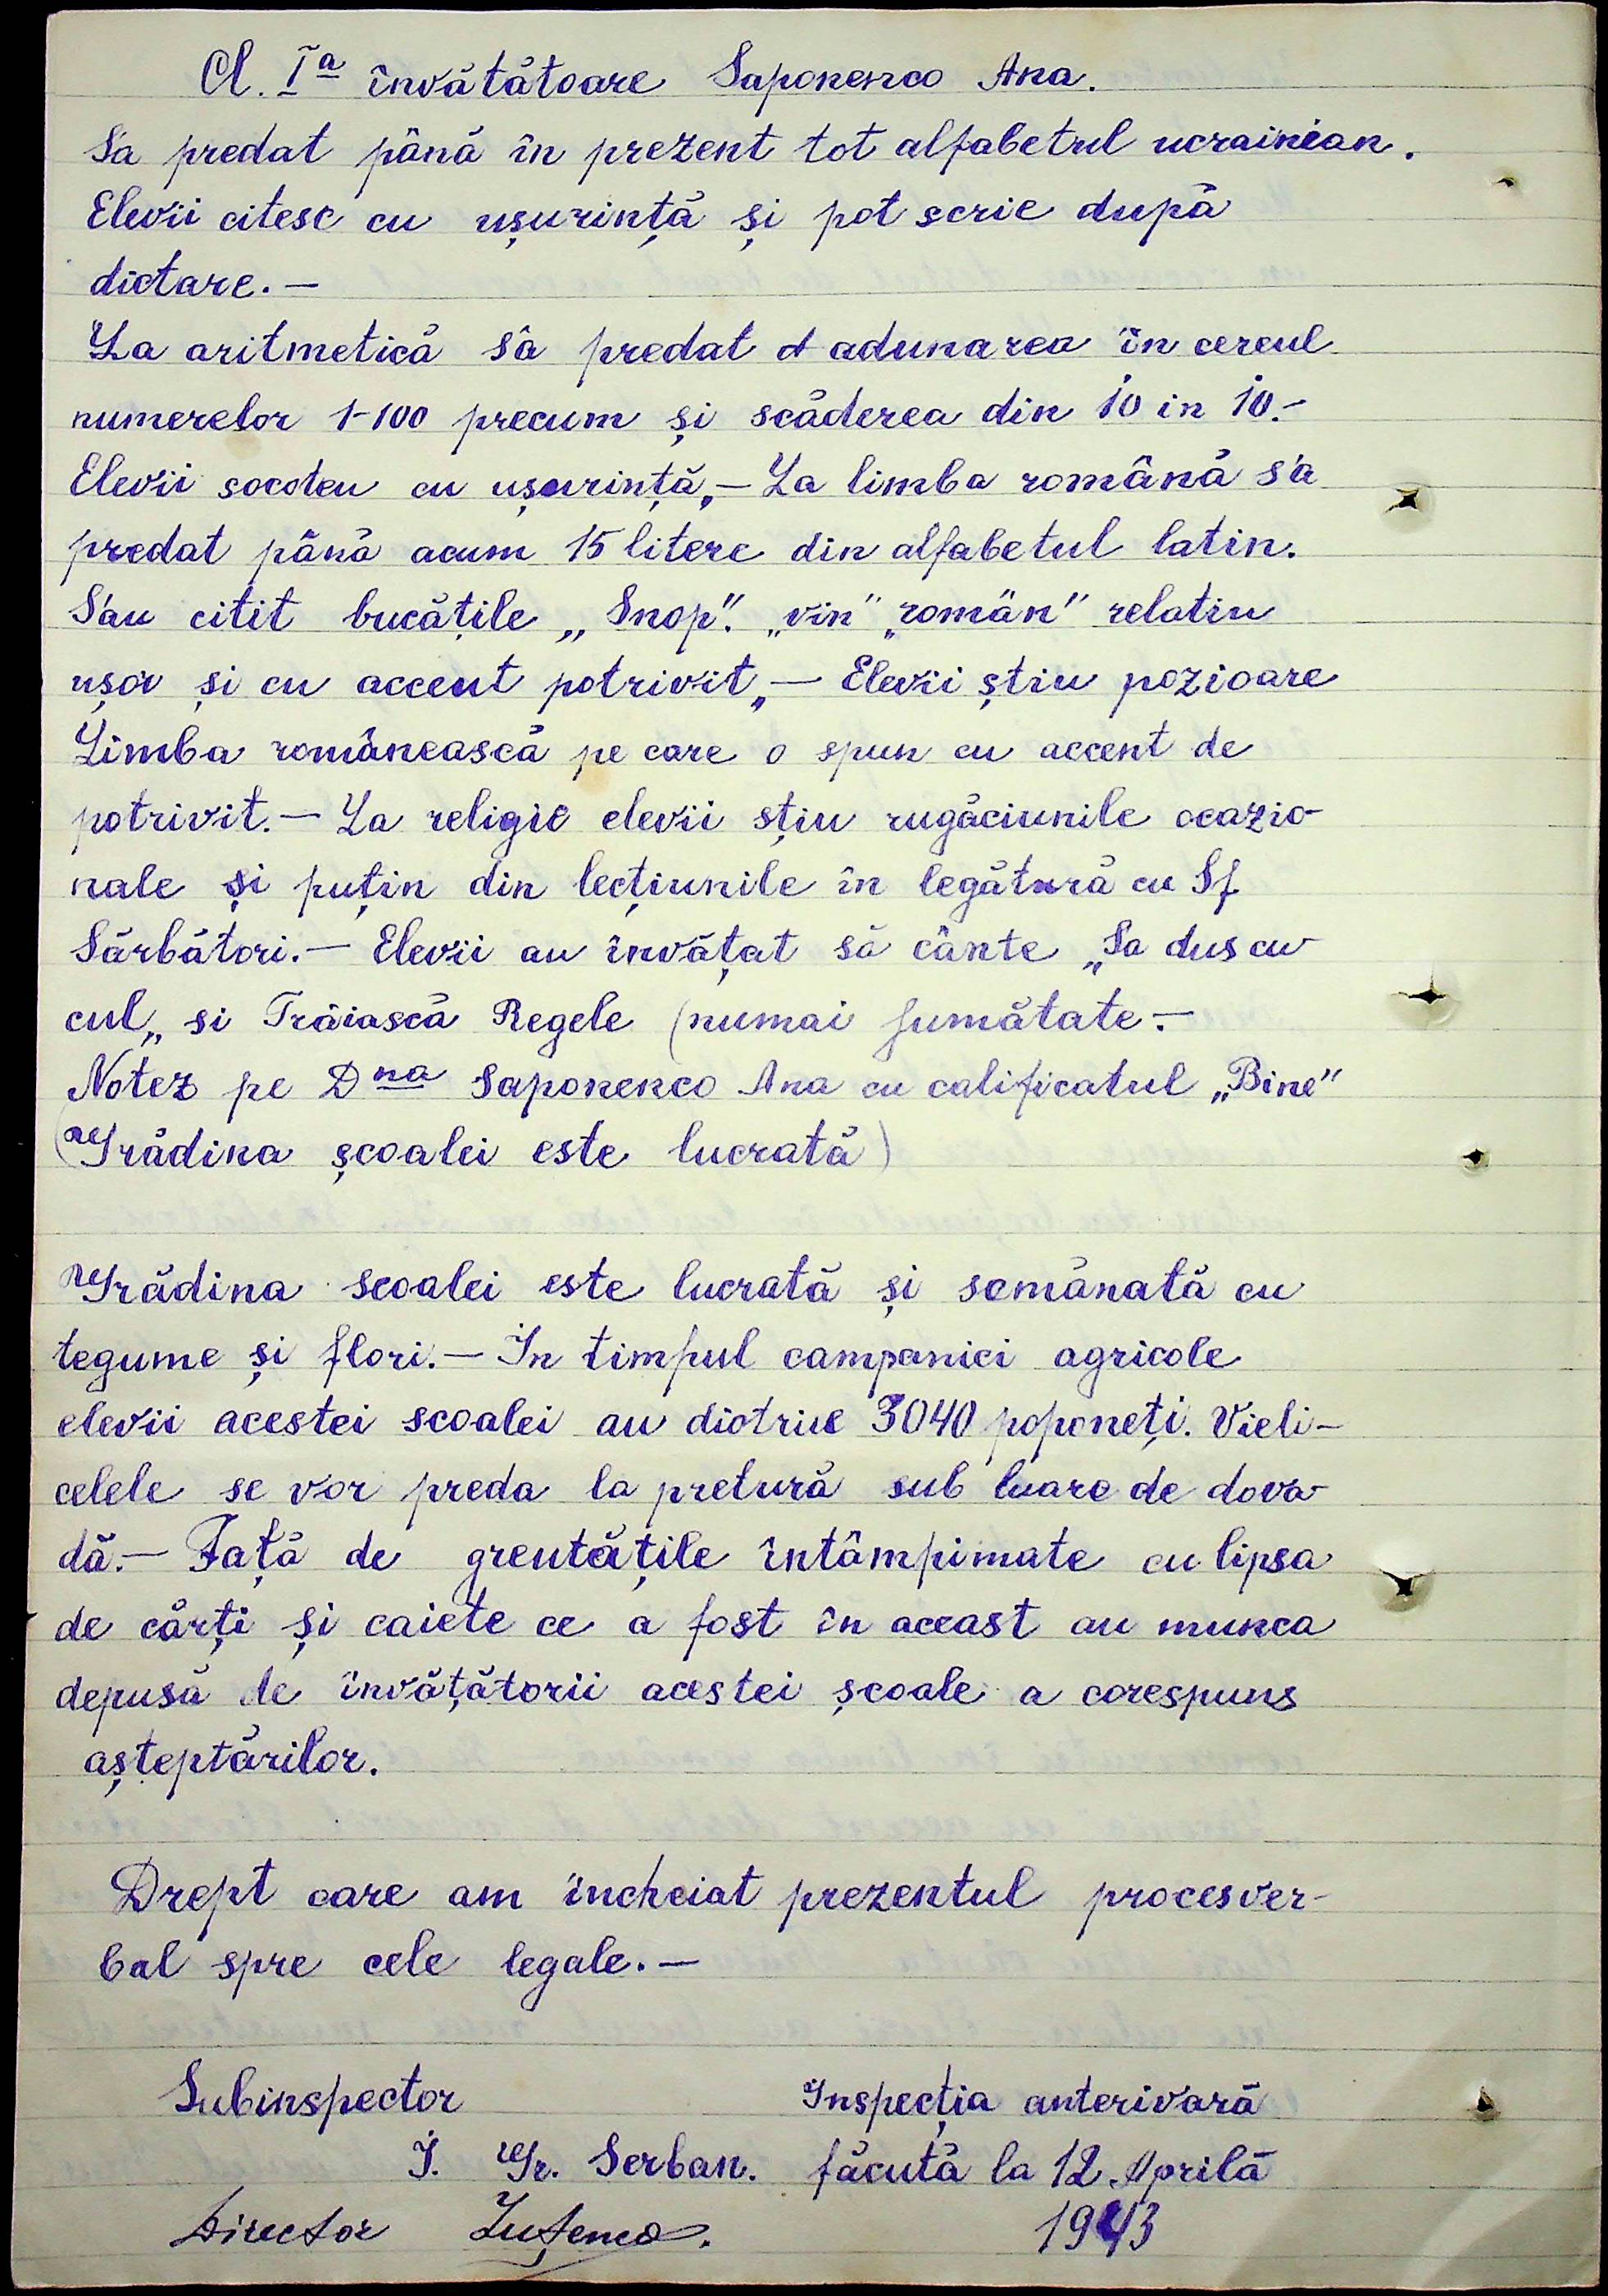 Cl. Iª învătătoare Saponenco Ana.
S'a predat până în prezent tot alfabetrul ucrainian.
Elevii citesc cu ușurință și pot scrie după
dictare.—
La aritmetică s'a predat adunarea în cercul
numerelor 1-100 precum și scăderea din 10 in 10.-
Elevii socoteu cu ușurință,— La limba română s'a
predat până acum 15 litere din alfabetul latin.
S'au citit bucățile „Snop". „vin" „român" relatiu
ușor și cu accent potrivit,— Elevii știu pozioare
Limba românească pe care o spun cu accent de
potrivit.— La religie elevii stiu rugăciunile ocazio-
nale și puțin din lecțiunile în legătură cu Sf
Sărbători.— Elevii au învățat să cânte „Sa dus cu-
cul„ si Trăiască Regele (numai jumătate.—
Notez pe Dna Saponenco Ana cu calificatul „Bine"
(Grădina școalei este lucrată)
Grădina scoalei este lucrată și semănată cu
tegume și flori.— In timpul campaniei agricole
elevii acestei scoalei au distrus 3040 poponeți. Vieli-
celele se vor preda la pretură sub luare de dova-
dă.— Față de greutățile întâmpimate cu lipsa
de cărți și caiete ce a fost în aceast an munca
depusă de învățătorii acestei școale a corespuns
așteptărilor.
Drept care am încheiat prezentul procesver-
bal spre cele legale.—
Subinspector Inspecția anterioară
I. Gr. Serban. făcută la 12 Aprilă
Director Iuțenco. 1943